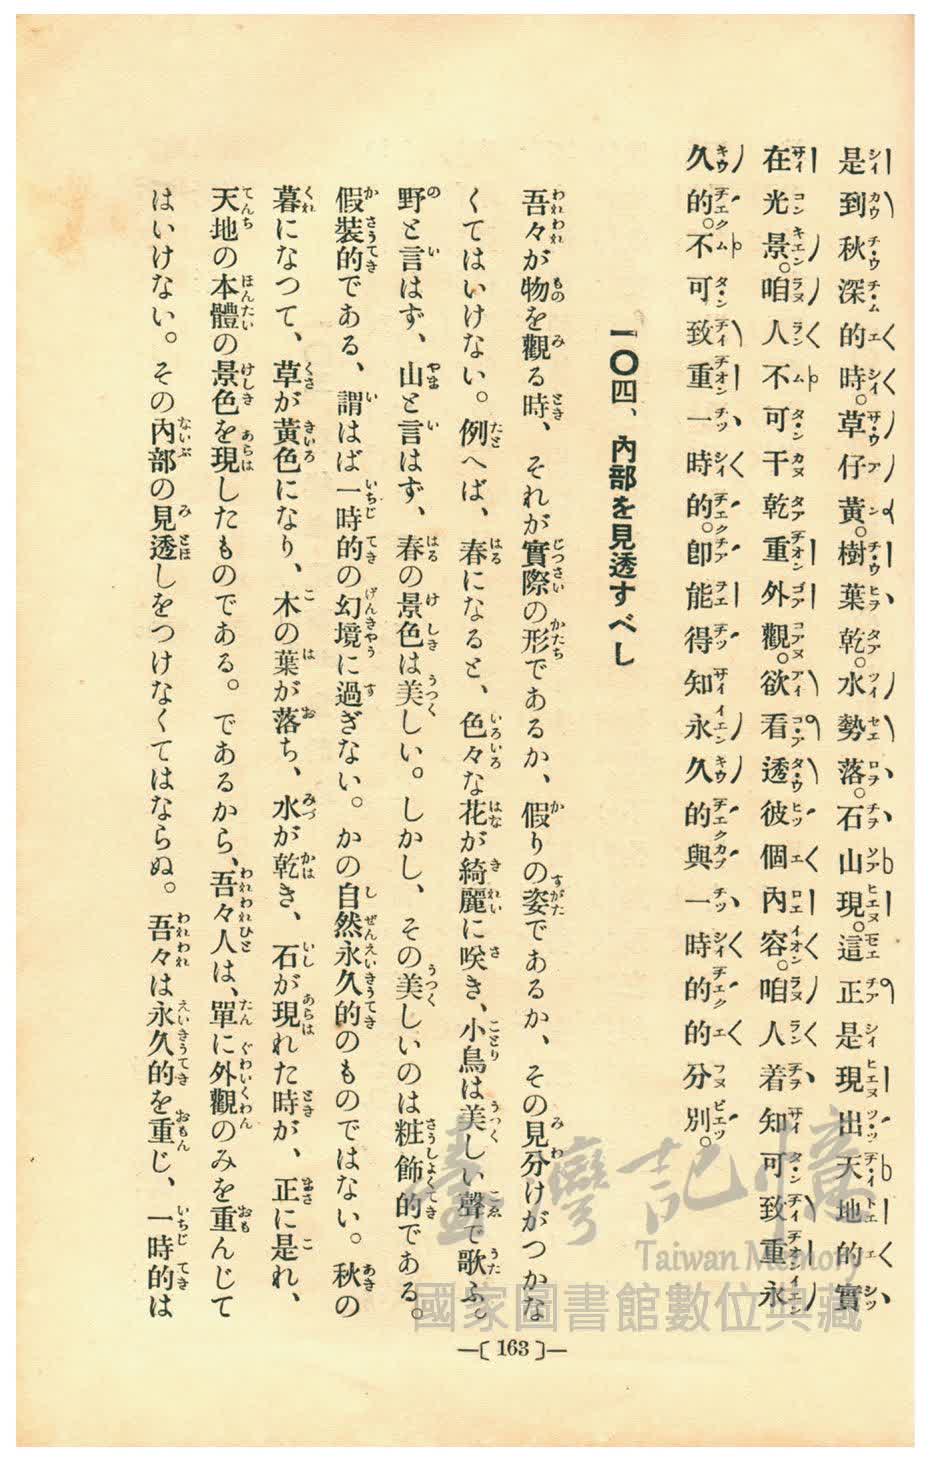 是到秋深的時。草仔黃。樹葉乾。水勢落。石山現。這正是現出天地的實
在光景。咱人不可干乾重外觀。欲看透彼個內容。咱人着知可致重永
久的。不可致重一時的。卽能得知永久的與一時的的分別。
一〇四、內部を見透すべし
吾々が物を觀る時、それが實際の形であるか、假りの姿であるか、その見分けがつかな
くてはいけない。例へば、春になると、色々な花が綺麗に咲き、小鳥は美しい聲で歌ふ。
野と言はず、山と言はず、春の景色は美しい。しかし、その美しいのは粧飾的である。
假裝的である、謂はば一時的の幻境に過ぎない。かの自然永久的のものではない。秋の
暮になつて、草が黃色になり、木の葉が落ち、水が乾き、石が現れた時が、正に是れ、
天地の本體の景色を現したものである。であるから、吾々人は、單に外觀のみを重んじて
はいけない。その內部の見透しをつけなくてはならぬ。吾々は永久的を重じ、一時的は
—〔 163 〕—
臺灣記憶
Taiwan Memory
國家圖書館數位典藏